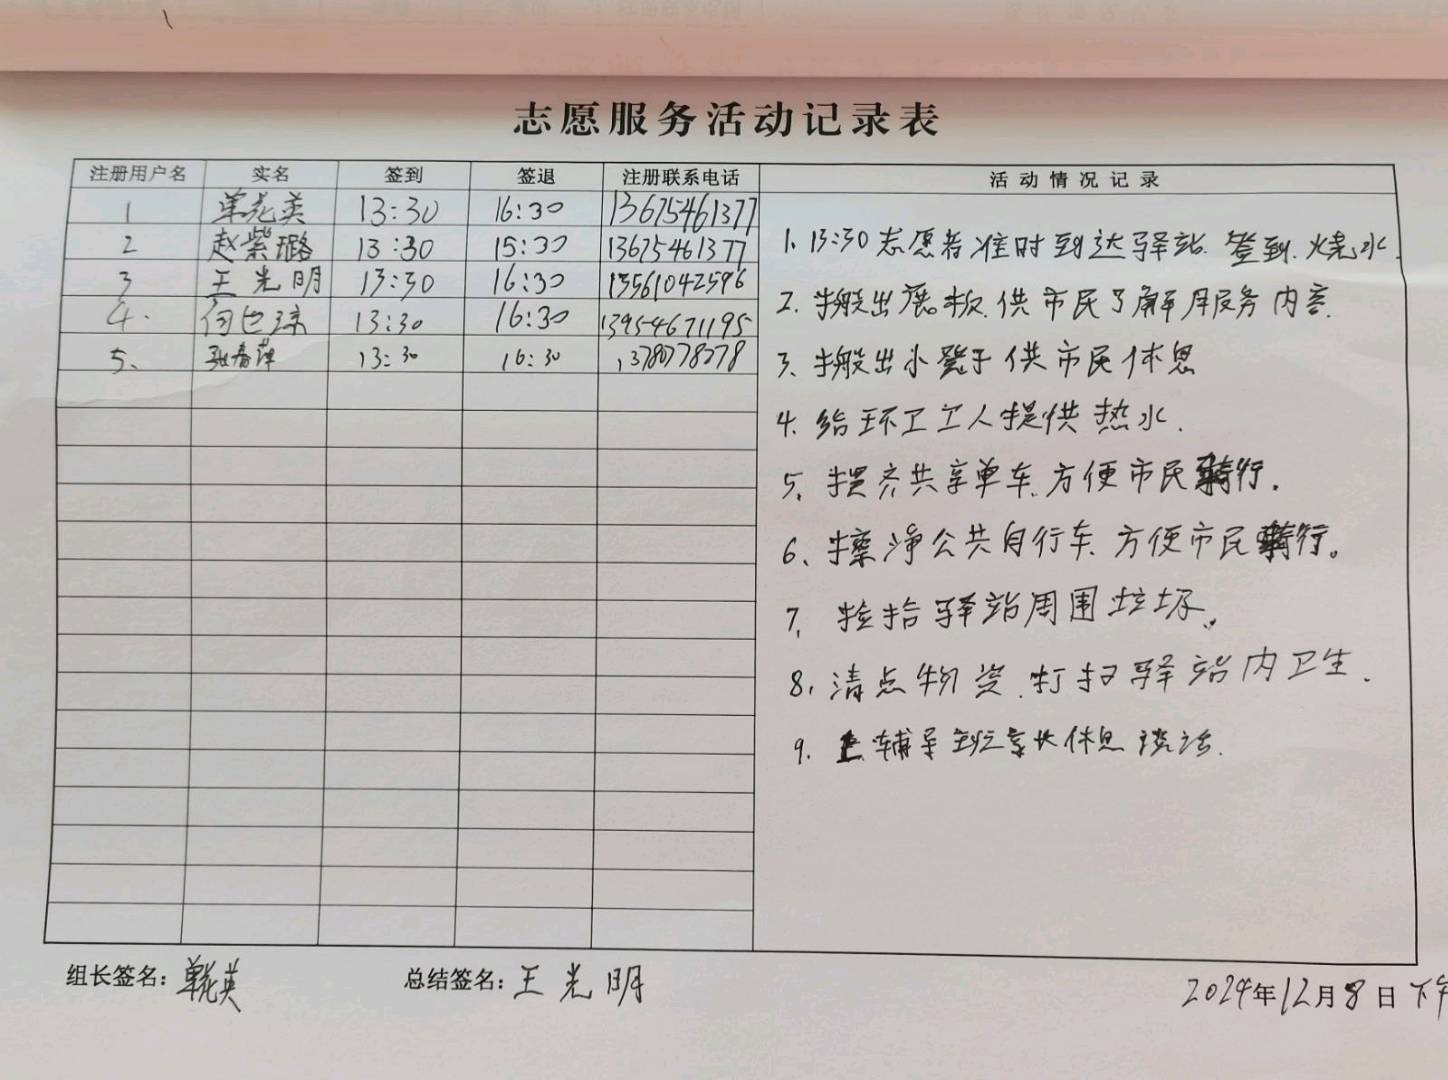 志愿服务活动记录表
注册用户名 实名 签到 签退 注册联系电话 活动情况记录
1 单花英 13:30 16:30 13675461377
2 赵紫璐 13:30 15:30 13675461377
3 王光明 13:30 16:30 13561042596
4. 何巴琼 13:30 16:30 13954671195
5、 张春萍 13:30 16:30
1、13:30志愿者准时到达驿站.签到.烧水.
2、搬出展板.供市民了解服务内容.
3、搬出小凳子供市民休息
4、给环卫工人提供热水.
5、摆齐共享单车.方便市民骑行.
6、擦净公共自行车.方便市民骑行。
7、捡拾驿站周围垃圾.
8、清点物资.打扫驿站内卫生.
9、上辅导班家长休息谈话.
组长签名：单花英 总结签名：王光明
2024年12月8日下午